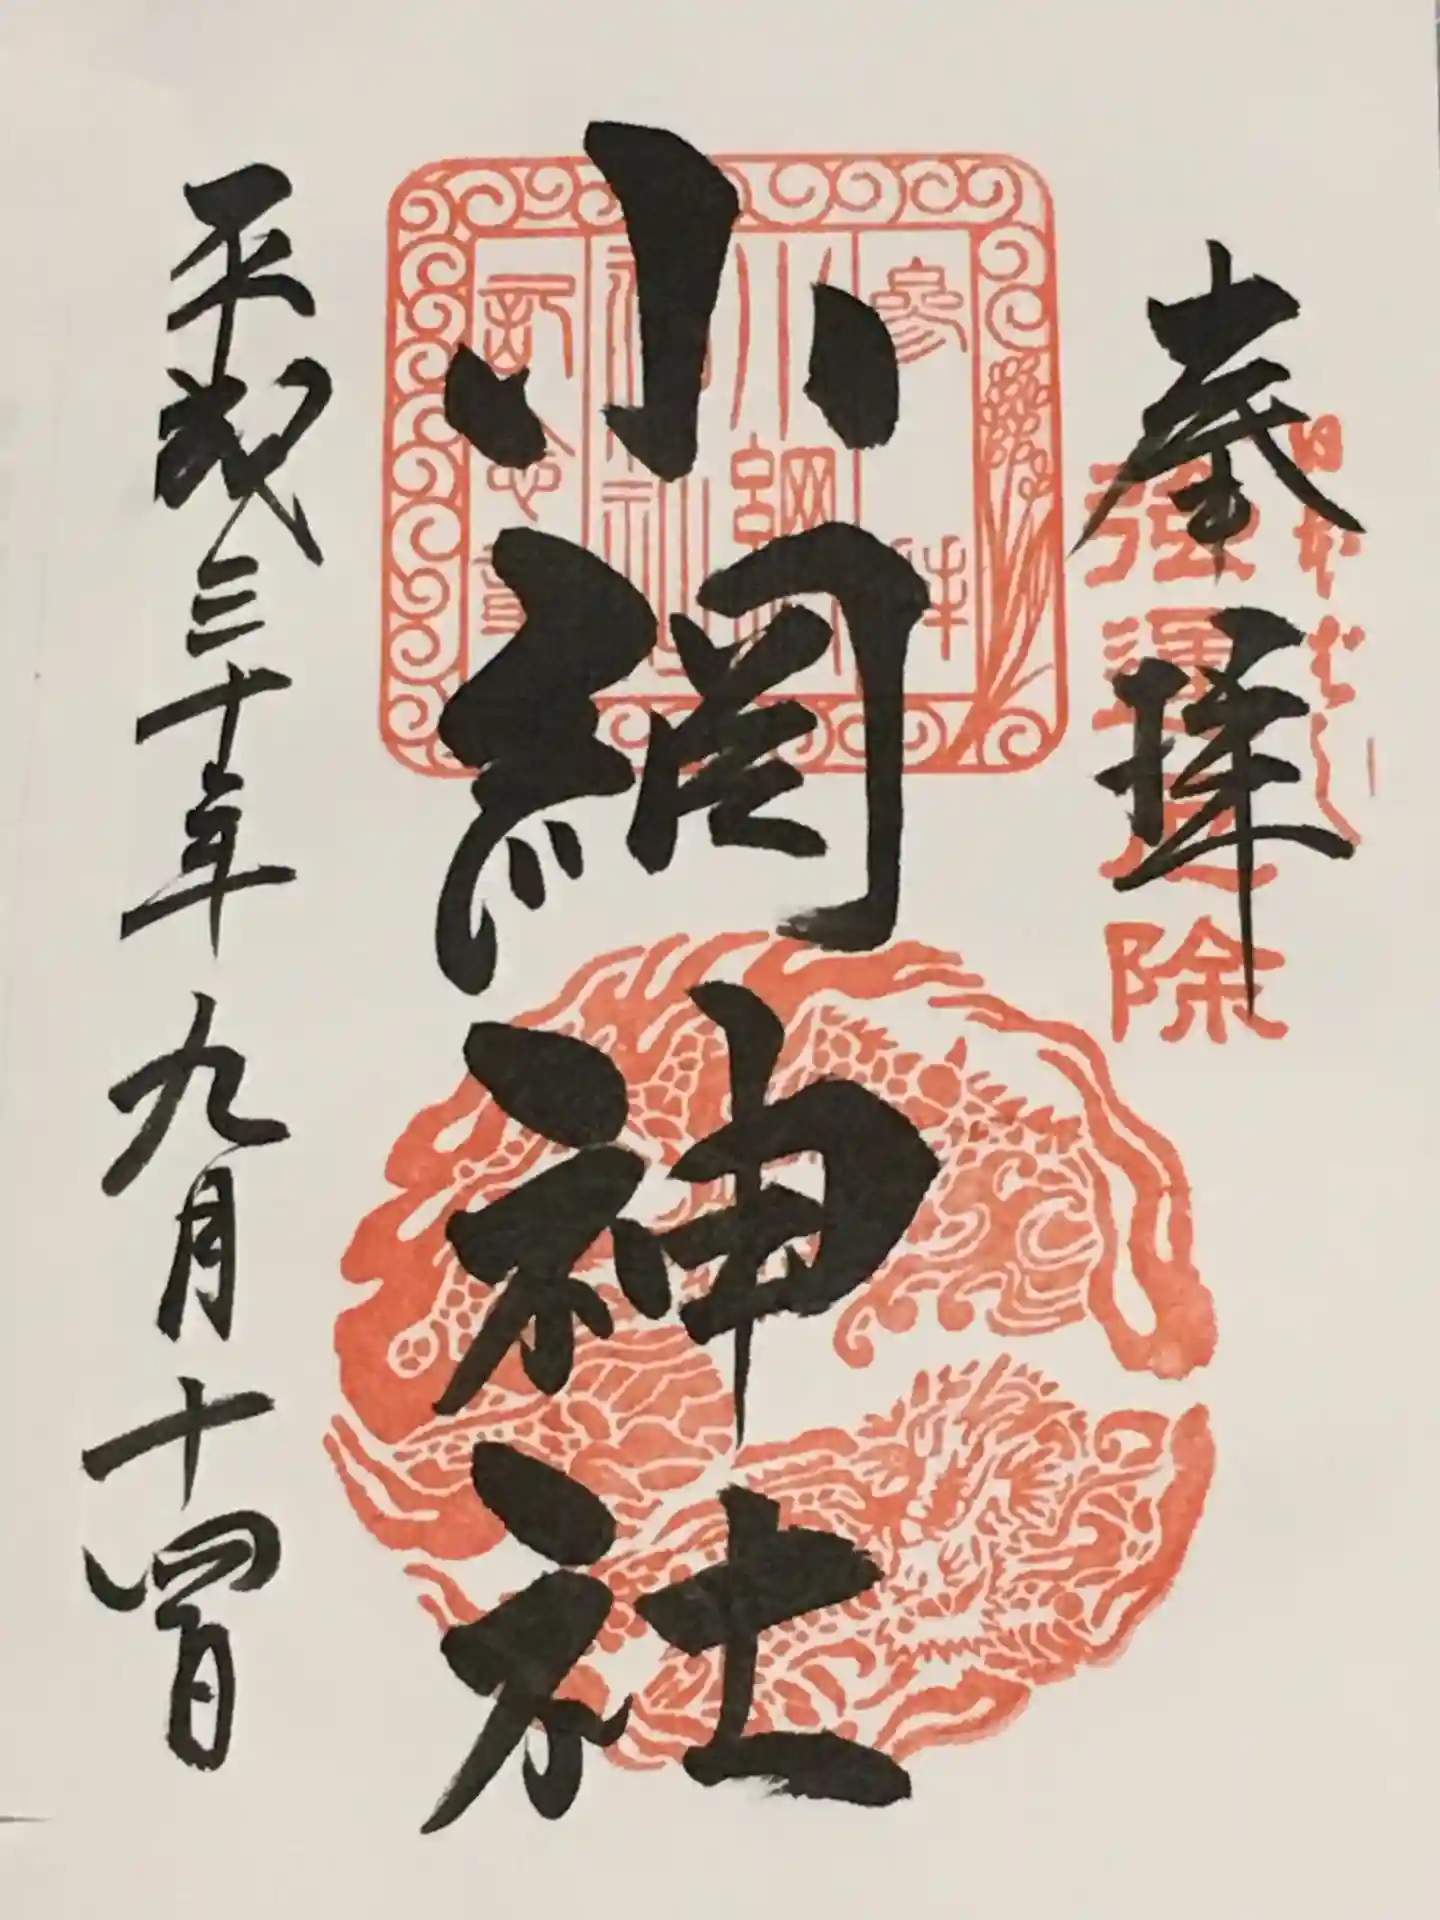 奉拝
日本ばし
強運厄除
小網神社
参拝
小網
神社
記念章
平成三十年九月十四日